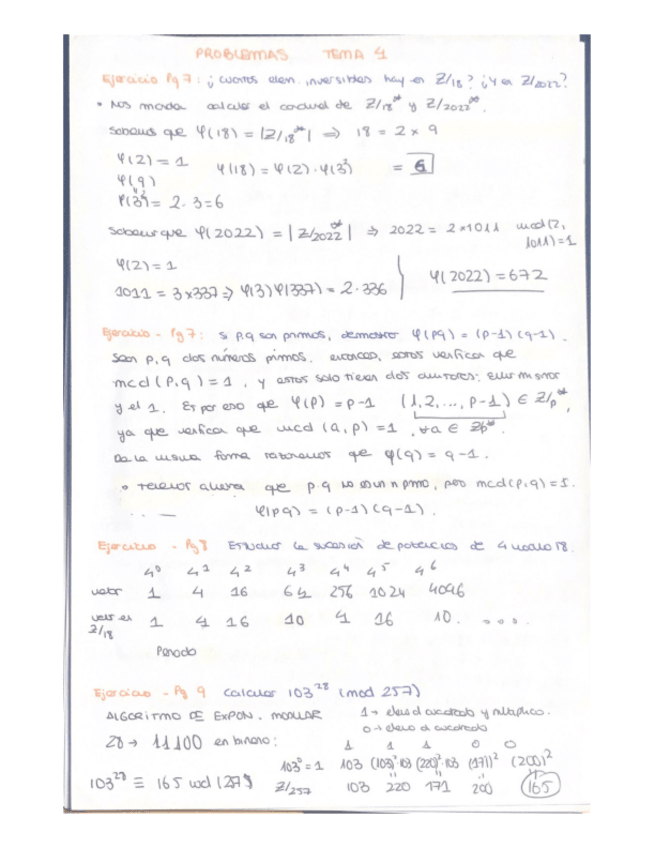 PROBLEMAS TEMA 4
Ejercicio Pg 7: ¿cuantos elem. inversibles hay en Z/18? ¿Y en Z/2022?
• Nos manda calcular el cardinal de Z/18* y Z/2022*.
Sabemos que φ(18) = |Z/18*| ⇒ 18 = 2 × 9
φ(2) = 1
φ(18) = φ(2)·φ(3²) = 6
φ(9)
φ(3²) = 2·3 = 6
Sabemos que φ(2022) = |Z/2022*| ⇒ 2022 = 2×1011 mcd(2,
1011) = 1
φ(2) = 1
φ(2022) = 672
1011 = 3×337 ⇒ φ(3)φ(337) = 2·336
Ejercicio - Pg 7: si p,q son primos, demostrar φ(pq) = (p-1)(q-1).
Sean p, q dos números primos. entonces, estos verifican que
mcd(p,q) = 1, y estos solo tienen dos divisores: ellos mismos
y el 1. Es por eso que φ(p) = p-1 (1,2,...,p-1) ∈ Z/p*,
ya que verifican que mcd(a,p) = 1, ∀a ∈ Zp*.
De la misma forma razonamos que φ(q) = q-1.
• Tenemos ahora que p·q no es un nº primo, pero mcd(p,q) = 1.
φ(pq) = (p-1)(q-1).
Ejercicio - Pg 8 Estudiar la sucesión de potencias de 4 modulo 18.
4⁰ 4¹ 4² 4³ 4⁴ 4⁵ 4⁶
valor 1 4 16 64 256 1024 4096
valor en Z/18 1 4 16 10 4 16 10. . . . .
Periodo
Ejercicio - Pg 9 calcular 103²⁸ (mod 257)
ALGORITMO DE EXPON. MODULAR 1 → elevo al cuadrado y multiplico.
0 → elevo al cuadrado
28 → 11100 en binario: 1 1 1 0 0
103⁰ = 1 103 (103)²·103 (220)²·103 (171)² (200)²
103²⁸ ≡ 165 mod (257) Z/257 103 220 171 200 165